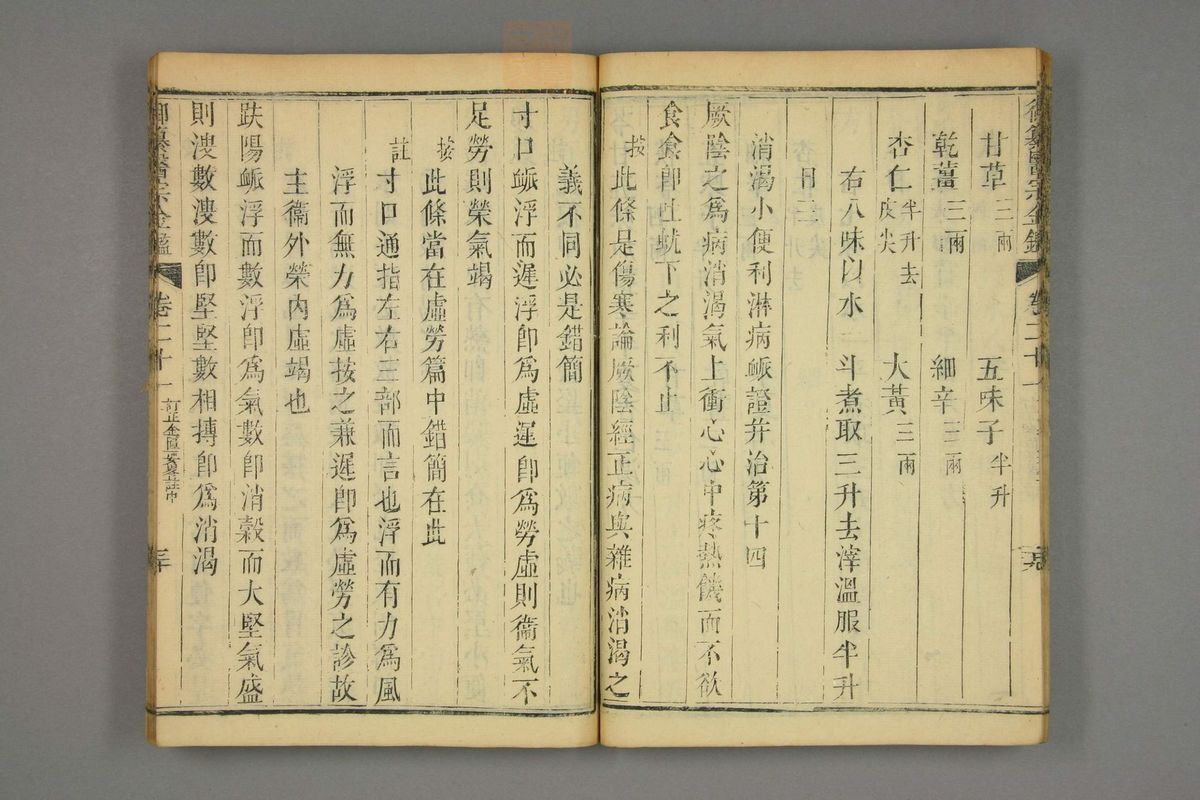 御纂醫宗金鑑 卷二十一
甘草三兩 五味子半升
乾薑三兩 細辛三兩
杏仁半升去皮尖 大黃三兩
右八味以水一斗煮取三升去滓溫服半升
日三
消渴小便利淋病脈證幷治第十四
厥陰之為病消渴氣上衝心心中疼熱饑而不欲
食食卽吐蚘下之利不止
按此條是傷寒論厥陰經正病與雜病消渴之
義不同必是錯簡
寸口脈浮而遲浮卽為虛遲卽為勞虛則衛氣不
足勞則榮氣竭
按此條當在虛勞篇中錯簡在此
註寸口通指左右三部而言也浮而有力為風
浮而無力為虛按之兼遲卽為虛勞之診故
主衛外榮內虛竭也
趺陽脈浮而數浮卽為氣數卽消穀而大堅氣盛
則溲數溲數卽堅堅數相搏卽為消渴
御纂醫宗金鑑 卷二十一 訂正金匱要畧註中 三十